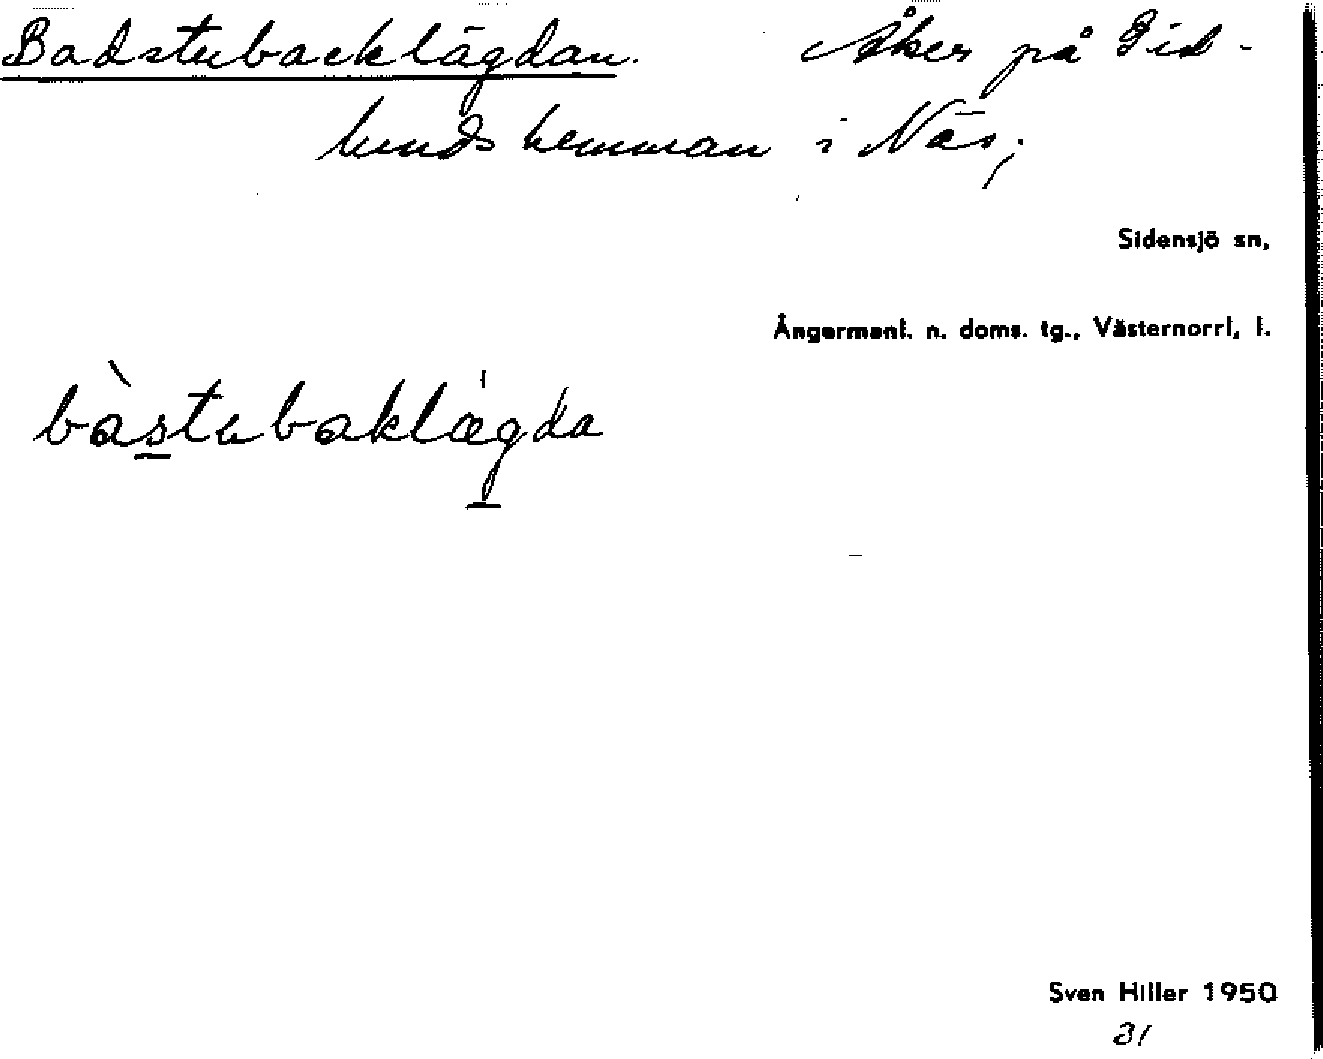 Badstubacklägdan. Åker på Gid-
lunds hemman i Näs,
Sidensjö sn,
Ångermanl. n. doms. tg., Västernorrl, l.
bàstubaklǽgda
Sven Hiller 1950
31